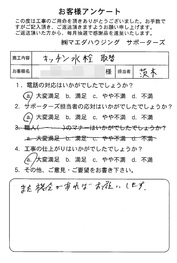 お客様アンケート
この度は工事のご用命を頂きありがとうございました。お手数です
がご記入頂き、ご返送頂きますようお願い申し上げます。
ご返送頂いた方から、毎月抽選で感謝品を進呈いたします。
㈱マエダハウジング サポーターズ
工事内容 キッチン水栓 取替
お客様名 様 担当者 茨木
1. 電話の対応はいかがでしたでしょうか?
a. 大変満足 b. 満足 c. やや不満 d. 不満
2. サポーターズ担当者の対応はいかがでしたでしょうか?
a. 大変満足 b. 満足 c. やや不満 d. 不満
3. 職人( )のマナーはいかがでしたでしょうか?
a. 大変満足 b. 満足 c. やや不満 d. 不満
4. 工事の仕上がりはいかがでしたでしょうか?
a. 大変満足 b. 満足 c. やや不満 d. 不満
5. その他、ご意見・ご要望をお書き下さい。
また機会がすればお願いします